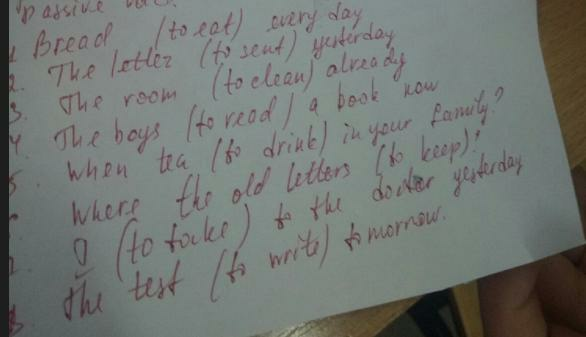 passive
1 Bread (to eat) every day
2. The letter (to sent) yesterday
3. The room (to clean) already
4. The boys (to read) a book now
5 When tea (to drink) in your family?
Where the old letters (to keep)?
7. I (to take) to the doctor yesterday
8. The test (to write) tomorrow.